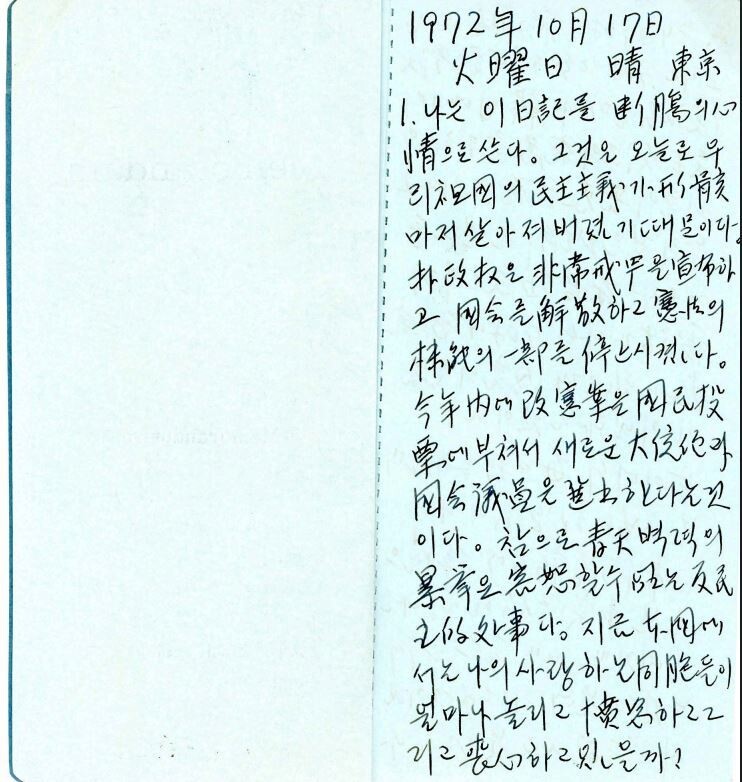 1972年 10月 17日
火曜日 晴 東京
1. 나는 이 日記를 断腸의 心
情으로 쓴다. 그것은 오늘로 우
리 祖國의 民主主義가 形骸
마저 살아져 버렸기 때문이다.
朴政权은 非常戒严을 宣布하
고 國会를 解散하고 憲法의
机能의 一部를 停止시켰다.
今年内에 改憲案을 國民投
票에 부쳐서 새로운 大統領과
國会議員을 選出한다는 것
이다. 참으로 靑天벽력의
暴挙요 容恕할 수 없는 反民
主的 処事다. 지금 本國에
서는 나의 사랑하는 同胞들이
얼마나 놀라고 憤怒하고 그
리고 喪心하고 있을까?